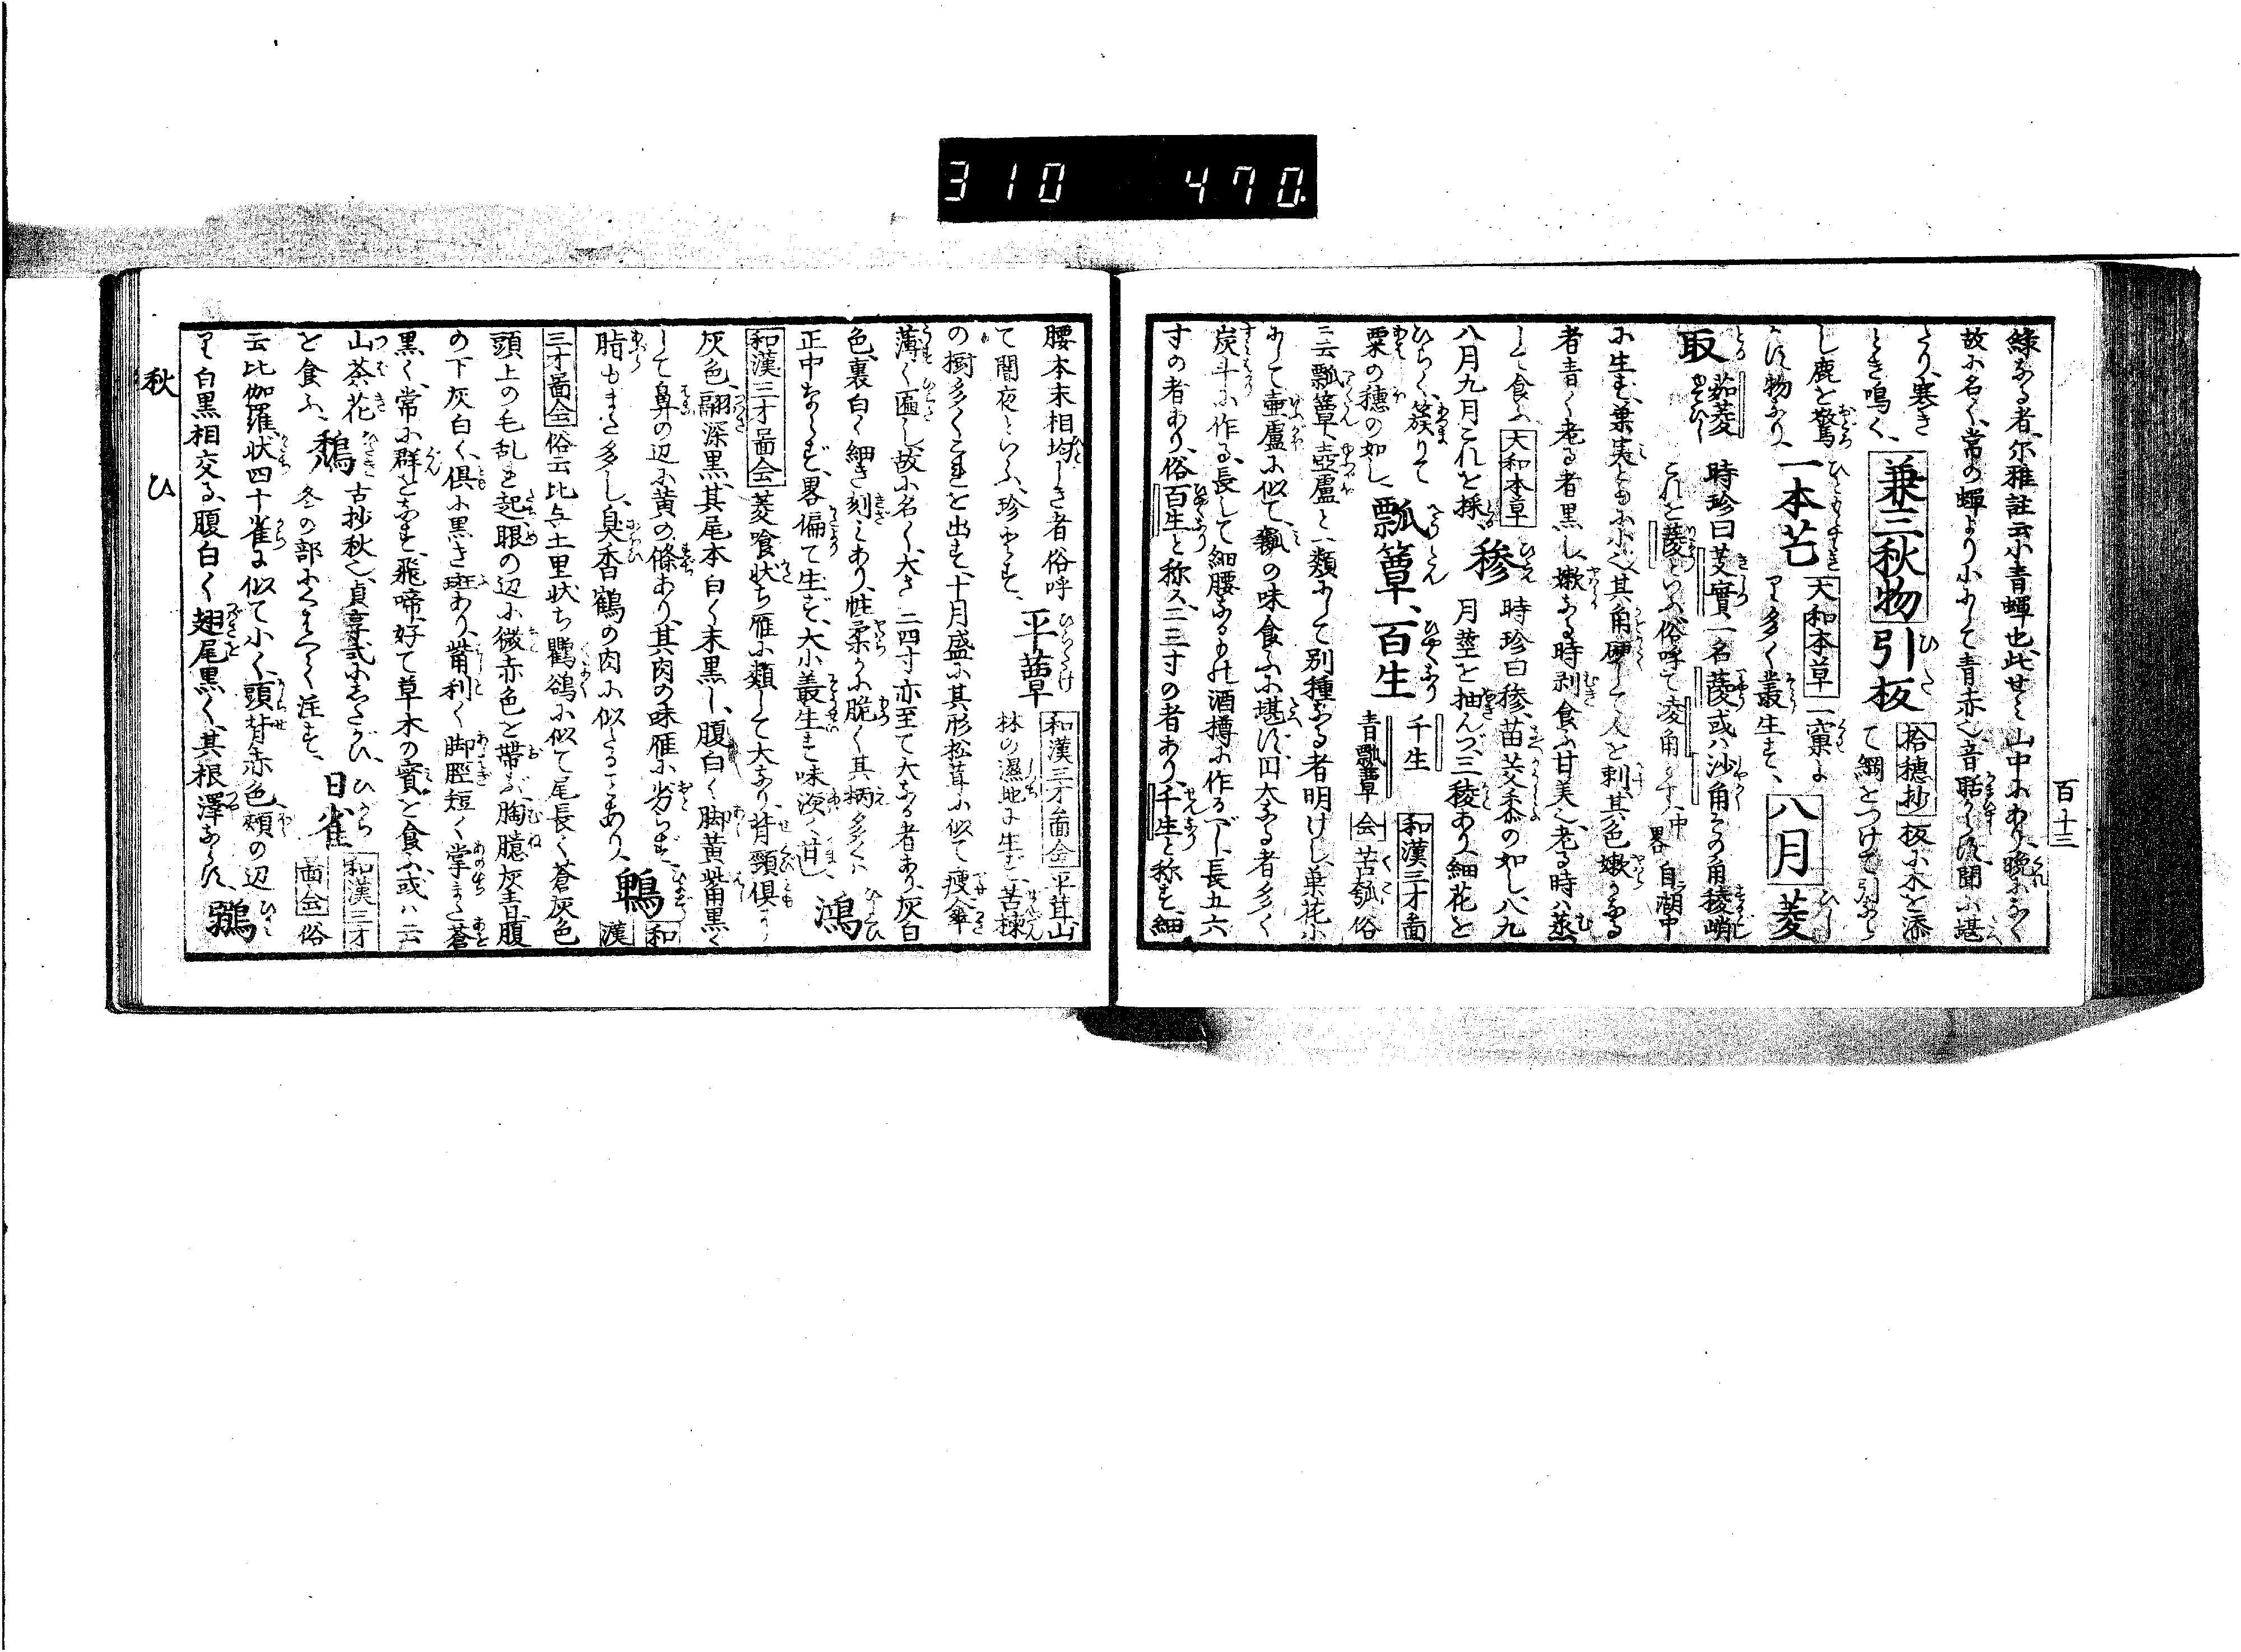 310 470.
百十三
緑なる者、尓雅註云小青蟬也、此せミ山中にあり、晩になく
故に名く、常の蟬より小にして青赤也、音聒からず、聞に堪
たり、寒き
とき鳴く、
兼三秋物
引板
拾穂抄
板に木を添
て綱をつけて引ならし鹿を驚
かす物なり、
一本芒
大和本草
一窠よ
り多く叢生す、
八月
菱
取
茹菱
時珍曰芰實一名菱或ハ沙角その角稜峭
これを菱といふ、俗呼て凌角とす、中畧自湖中
に生ず、菓実ともに小也、其角硬くして人を刺、其色嫩なる
者青く老る者黒し、嫩なる時剥食ふ甘美也、老る時ハ蒸
して食ふ
大和本草
八月九月これを採る
穇
時珍曰穇苗茭黍の如し、八九
月茎を抽んづ、三稜あり、細花を
ひらく、簇りて
粟の穂の如し、
瓢簟、百生
千生
青瓢簟
和漢三才啚会
苦瓠俗
云瓢簟、壺盧と一類にして別種なる者明けし、菓花小
にして壷盧に似て、瓤の味食ふに堪ず、大なる者多く
炭斗に作る、長して細腰なるもの酒樽に作るべし、長五六
寸の者あり、俗百生と称ス、二三寸の者あり、千生と称す、細
腰本末相均しき者俗呼
て闇夜といふ、珍とす、
平蕈
和漢三才啚会
平茸山
林の濕地に生ず、苦楝
の樹多くこれを出す、十月盛に其形松茸に似て瘦傘
薄く匾し、故に名く、大さ二四寸亦至て大なる者あり、灰白
色、裏白く細き刻ミあり、性柔かに脆く其柄多くハ
正中ならず、畧偏て生ず、大小叢生す味淡く甘し、
鴻
和漢三才啚会
菱喰状ち雁に類して大なり、背頸倶に
灰色、翮深黒、其尾本白く末黒し、腹白く脚黄觜黒く
して鼻の辺に黄の條あり、其肉の味雁に劣らず、
脂もまた多し、臭香鶴の肉に似たることあり、
鵯
和漢
三才啚会
俗云比与土里状ち鸜鵒に似て尾長く蒼灰色
頭上の毛乱れ起、眼の辺に微赤色を帯ぶ、胸臆灰青腹
の下灰白く、倶に黒き斑あり、觜利く脚脛短く掌また蒼
黒く、常に群をなす、飛啼、好て草木の實を食ふ、或ハ云
山茶花
古抄秋也、貞享式にしたがひ、
を食ふ、
鶲
冬の部にくはしく注す、
日雀
和漢三才
啚会
俗
云比伽羅、状四十雀に似て小く、頭背赤色、頬の辺
り白黒相交る、腹白く翅尾黒く、其根澤あらず、
鶸
秋
ひ